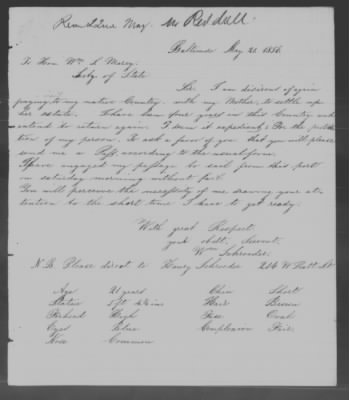 Mr Reddall.
Baltimore May 21. 1856
To Hon. Wm L Marcy
Secty of State
Sir. I am desirous of again
paying to my native Country, with my Mother, to settle up
her estate. I have been four years in this Country and
intend to return again. I deem it expedient, For the protec
tion of my person, To ask a favor of you that you will please
send me a Pass according to the usual form.
I have engaged my passage to sail from this port
on saturday morning without fail.
You will perceive the necessity of me drawing your at-
tention to the short time I have to get ready.
With great Respect,
your Obdt. Servant,
Wm Schroeder.
N.B. Please direct to Henry Schroeder 216 W Pratt St
Age 21 years Chin Short
Stature 5 ft 4 1/2 ins Hair Brown
Forhead High Face Oval
Eyes Blue Complexion Fair
Nose Common